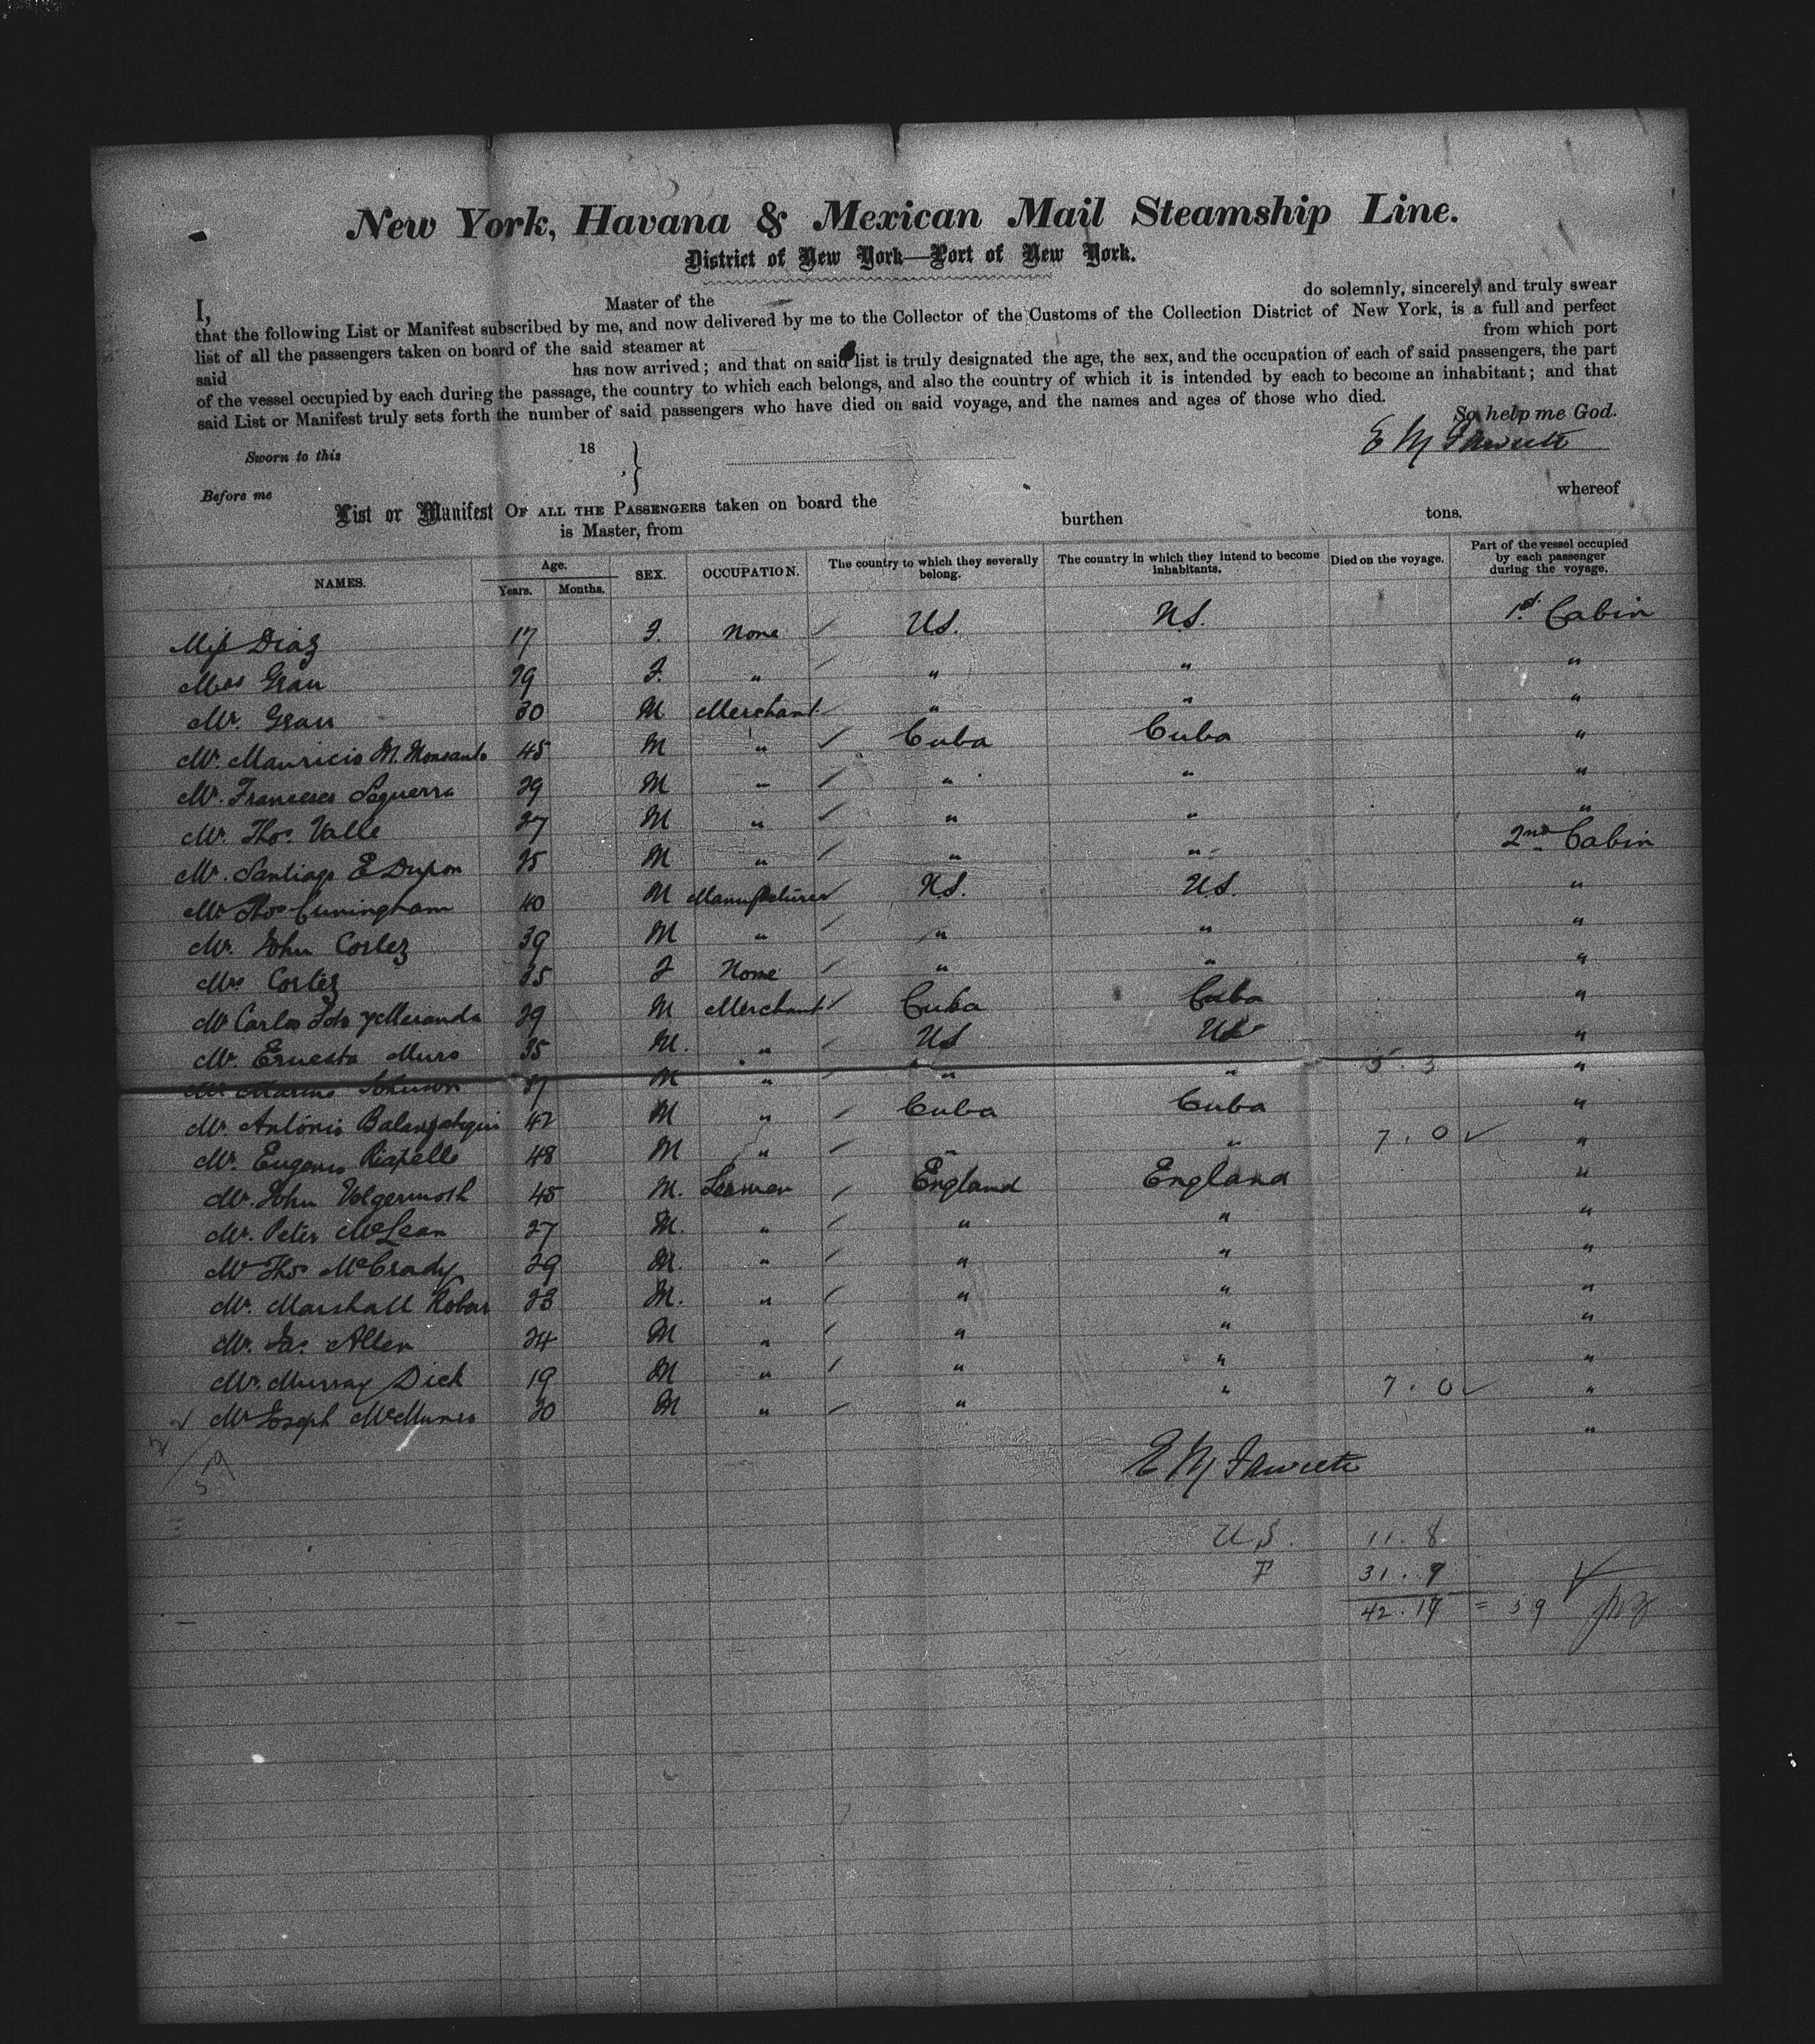 New York, Havana & Mexican Mail Steamship Line.
District of New York—Port of New York.
I, Master of the do solemnly, sincerely and truly swear
that the following List or Manifest subscribed by me, and now delivered by me to the Collector of the Customs of the Collection District of New York, is a full and perfect
list of all the passengers taken on board of the said steamer at from which port
said has now arrived; and that on said list is truly designated the age, the sex, and the occupation of each of said passengers, the part
of the vessel occupied by each during the passage, the country to which each belongs, and also the country of which it is intended by each to become an inhabitant; and that
said List or Manifest truly sets forth the number of said passengers who have died on said voyage, and the names and ages of those who died.
So help me God.
E M
Sworn to this 18
Before me
List or Manifest OF ALL THE PASSENGERS taken on board the whereof
is Master, from burthen tons.
NAMES. Age. Years. Months. SEX. OCCUPATION. The country to which they severally belong. The country in which they intend to become inhabitants. Died on the voyage. Part of the vessel occupied by each passenger during the voyage.
Miss Diaz 17 F. None U.S. U.S. 1st Cabin
Mrs Grau 29 F. " " " "
Mr. Grau 30 M Merchant " " "
Mr. Mauricio M. Monsanto 45 M " Cuba Cuba "
Mr. Francisco 29 M " " " "
Mr. Thos. Valle 27 M " " " "
Mr. Santiago E Dupon 25 M " " " 2nd Cabin
Mr Thos Cuningham 40 M Manufacturer U.S. U.S. "
Mr. John Cortez 39 M " " " "
Mrs Cortez 35 F None " " "
Mr Carlos y Meranda 29 M Merchant Cuba Cuba "
Mr. Ernesto Muro 35 M. " US US "
Mr Johnson M " " " 5. 3 "
Mr. Antonio 42 M " Cuba Cuba "
Mr. Eugenio 48 M " " " 7. 0 "
Mr. John 45 M. England England "
Mr. Peter McLean 27 M. " " " "
Mr Thos McCrady 29 M. " " " "
Mr. Marshall 23 M. " " " "
Mr. Jas. Allen 24 M " " " "
Mr. Murray Dick 19 M " " " "
Mr Joseph 30 M " " " 7. 0 "
E M
U.S. 11. 8
F 31. 9
42. 17 = 59